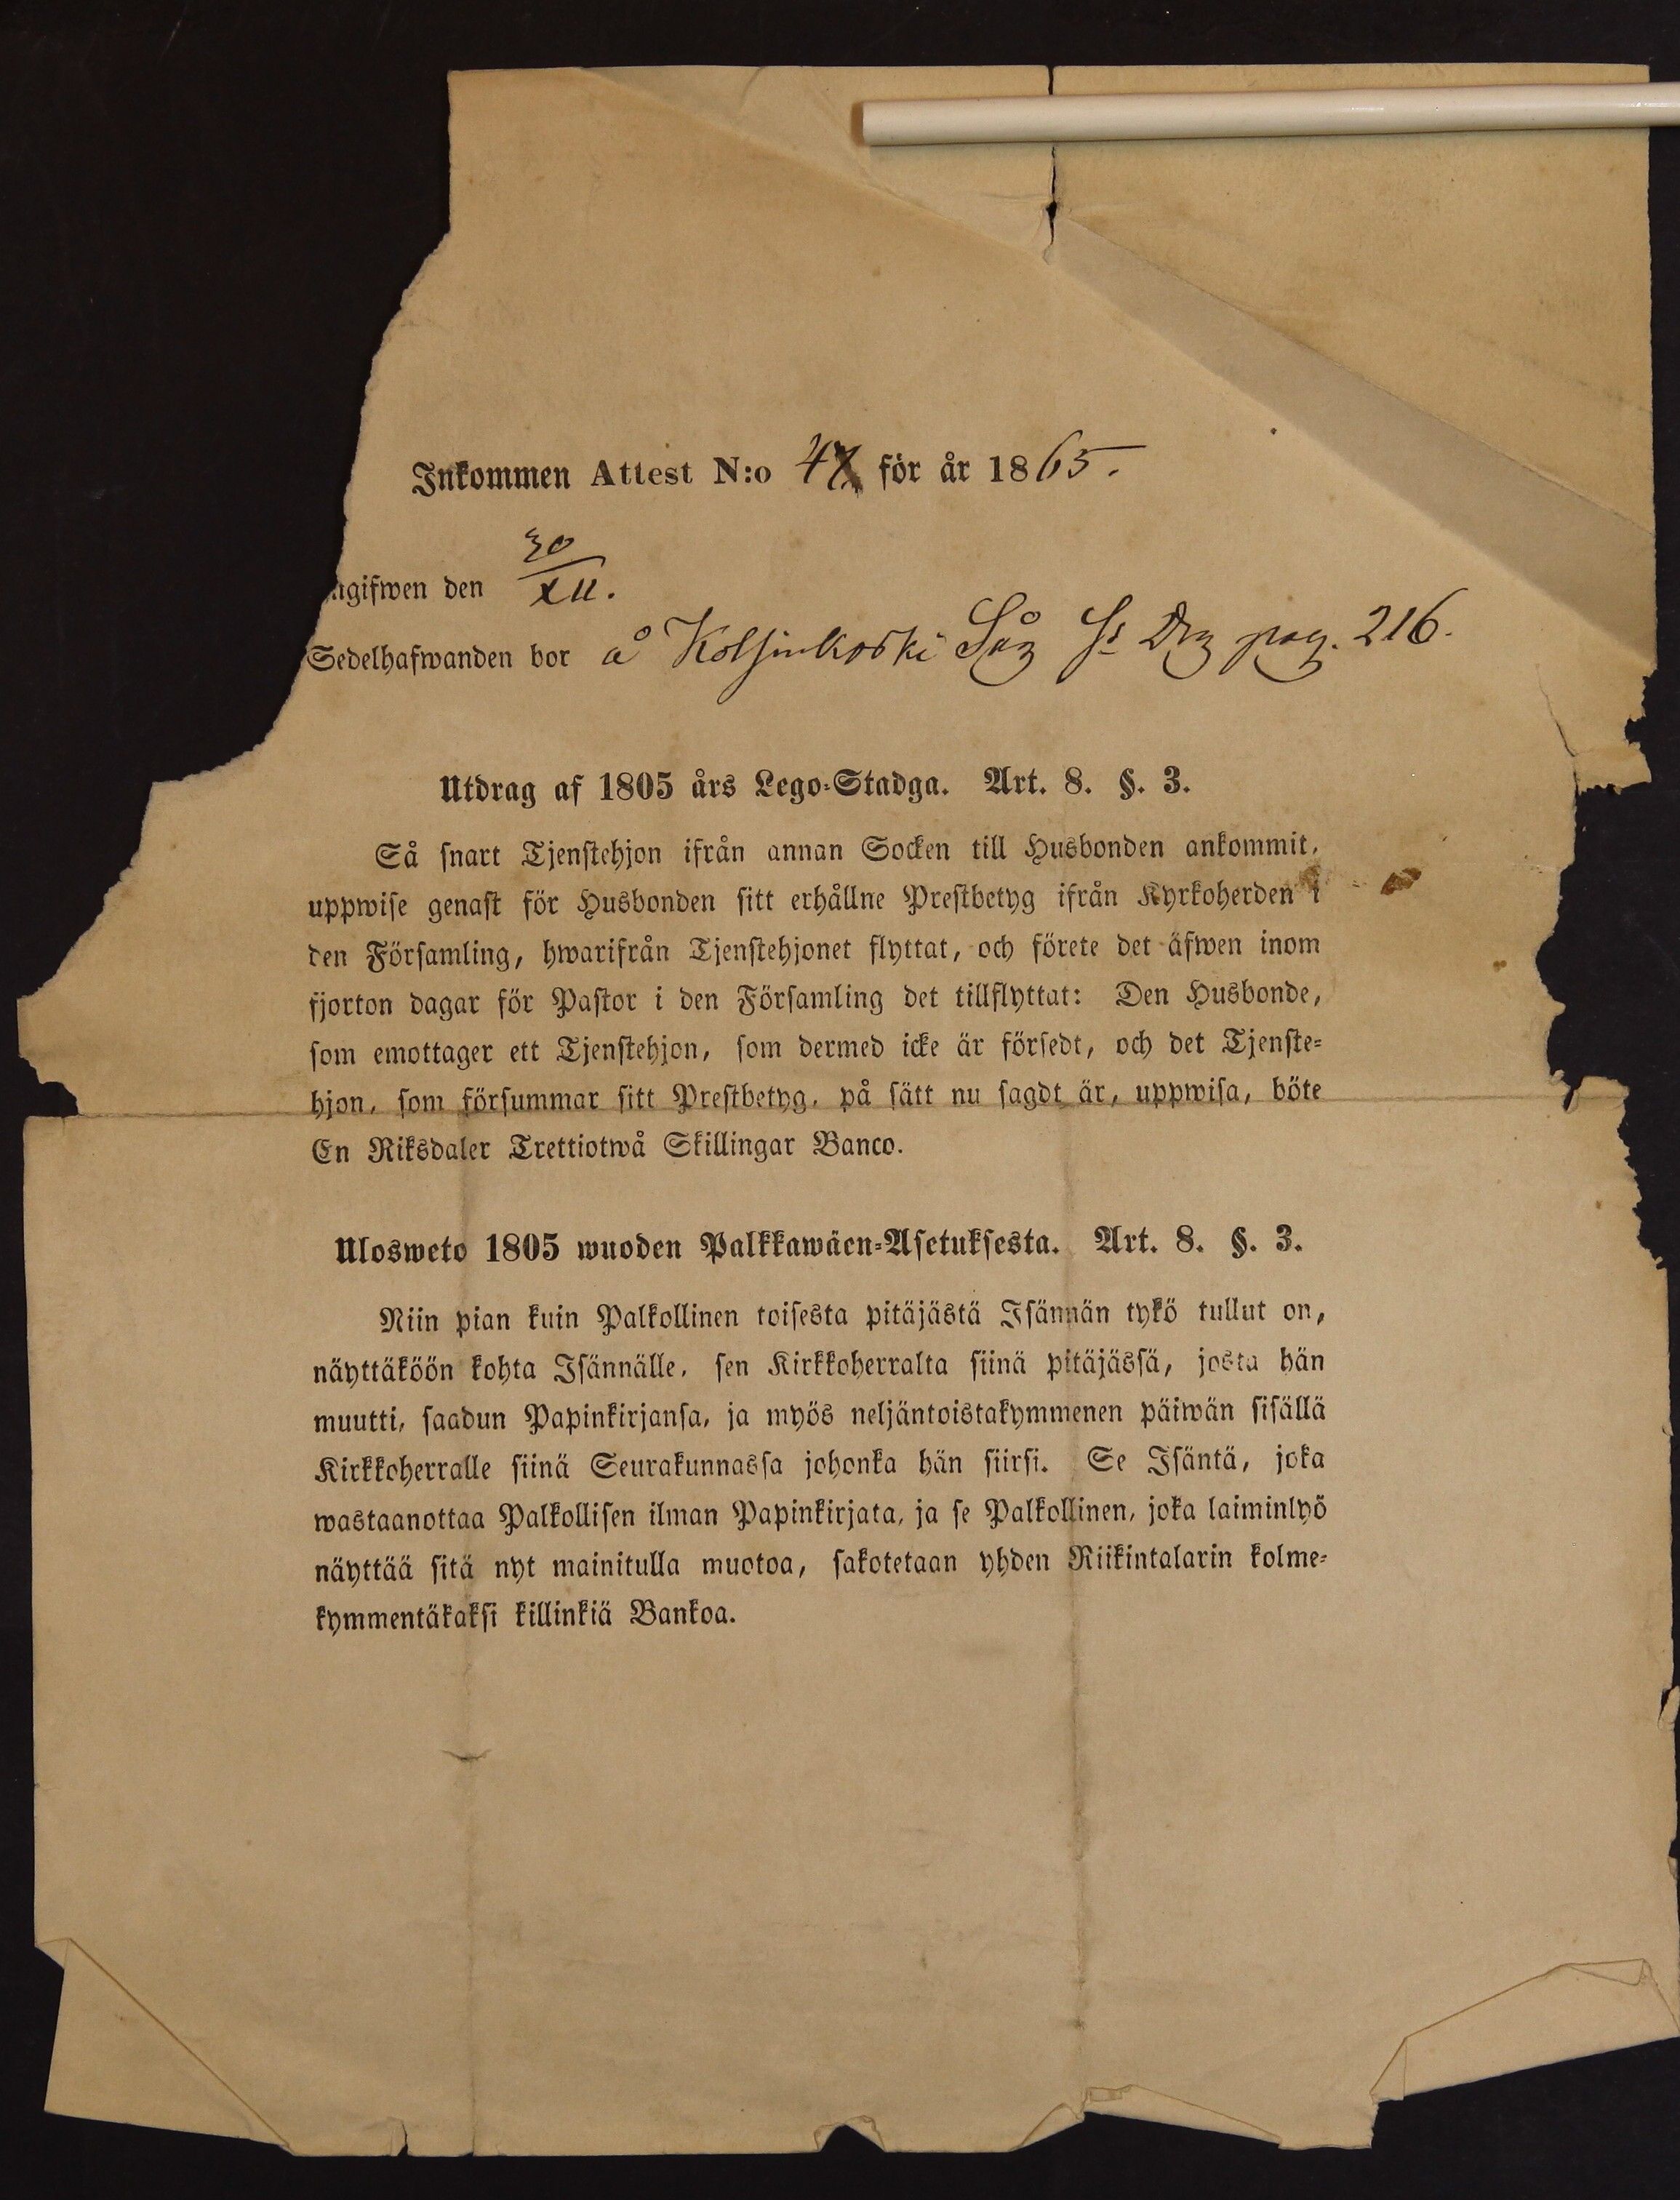 Inkommen Attest N:o 4 för år 1865.
30
ngifwen den XII.
Sedelhafwanden bor å Kolsinkoski Såg pag. 216.
Utdrag af 1805 års Lego-Stadga. Art. 8. §. 3.
Så snart Tjenstehjon ifrån annan Socken till Husbonden ankommit,
uppwise genast för Husbonden sitt erhållne Prestbetyg ifrån Kyrkoherden i
den Församling, hwarifrån Tjenstehjonet flyttat, och förete det äfwen inom
fjorton dagar för Pastor i den Församling det tillflyttat: Den Husbonde,
som emottager ett Tjenstehjon, som dermed icke är försedt, och det Tjenste-
hjon, som försummar sitt Prestbetyg, på sätt nu sagdt är, uppwisa, böte
En Riksdaler Trettiotwå Skillingar Banco.
Ulosweto 1805 wuoden Palkkawäen-Asetuksesta. Art. 8. §. 3.
Niin pian kuin Palkollinen toisesta pitäjästä Isännän tykö tullut on,
näyttäköön kohta Isännälle, sen Kirkkoherralta siinä pitäjässä, josta hän
muutti, saadun Papinkirjansa, ja myös neljäntoistakymmenen päiwän sisällä
Kirkkoherralle siinä Seurakunnassa johonka hän siirsi. Se Isäntä, joka
wastaanottaa Palkollisen ilman Papinkirjata, ja se Palkollinen, joka laiminlyö
näyttää sitä nyt mainitulla muotoa, sakotetaan yhden Riikintalarin kolme-
kymmentäkaksi killinkiä Bankoa.